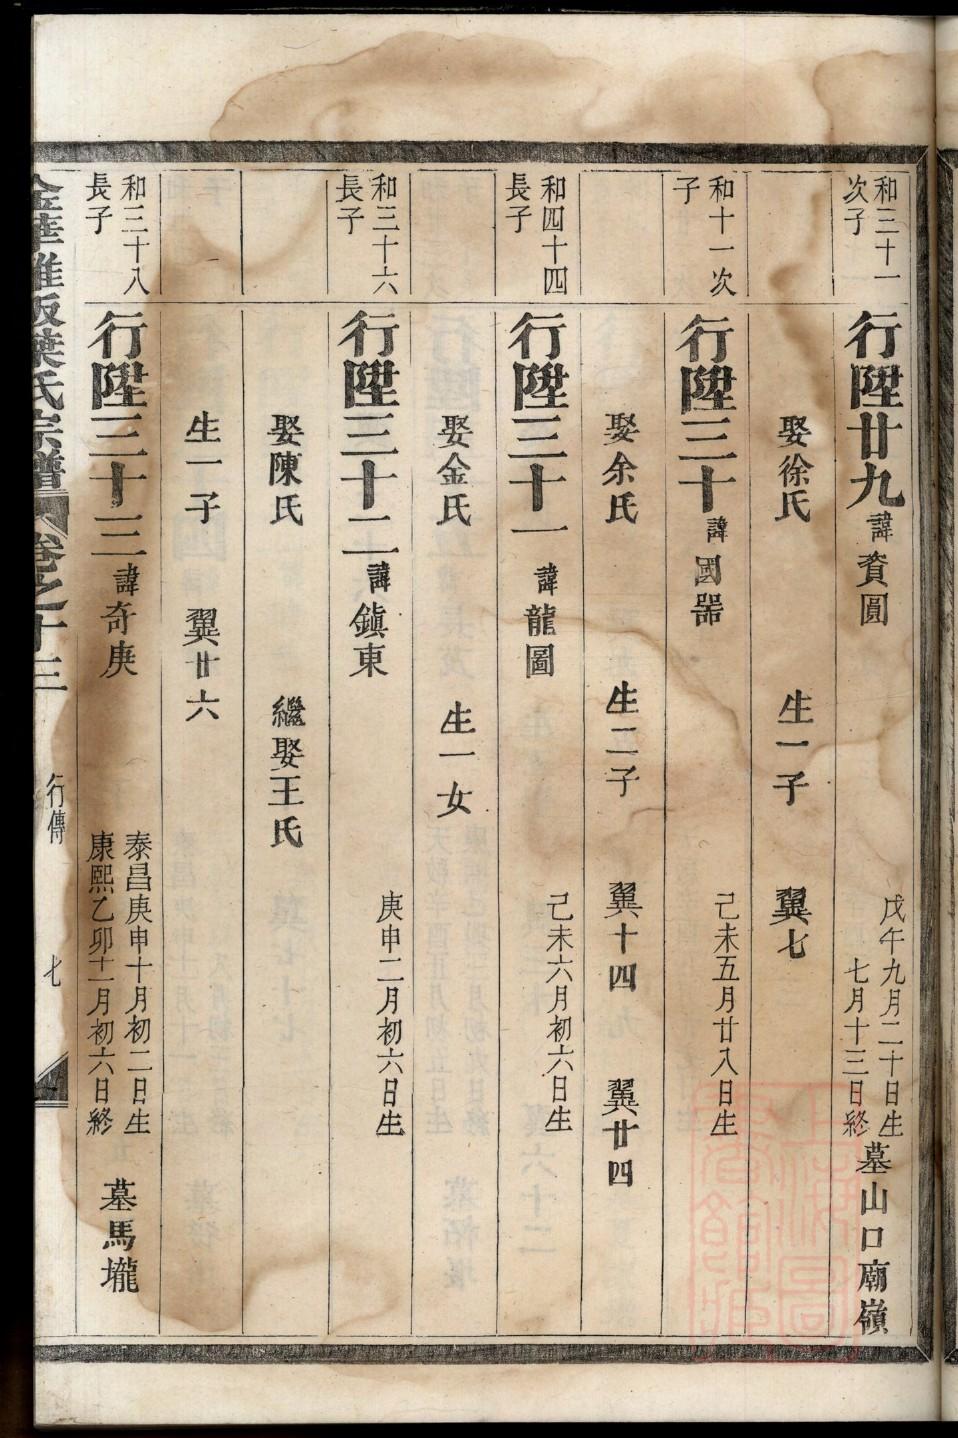 和三十一
次子
行陞廿九 諱賚圓
戊午九月二十日生
七月十三日終
墓山口廟嶺
娶徐氏 生一子 翼七
和十一次
子
行陞三十 諱國器
己未五月廿八日生
娶余氏 生二子 翼十四 翼廿四
和四十四
長子
行陞三十一 諱龍圖
己未六月初六日生
娶金氏 生一女
和三十六
長子
行陞三十二 諱鎮東
庚申二月初六日生
娶陳氏 繼娶王氏
生一子 翼廿六
和三十八
長子
行陞三十三 諱奇庚
泰昌庚申十月初二日生
康熙乙卯十一月初六日終
墓馬壠
葉氏宗譜 卷之十三 行傳 七